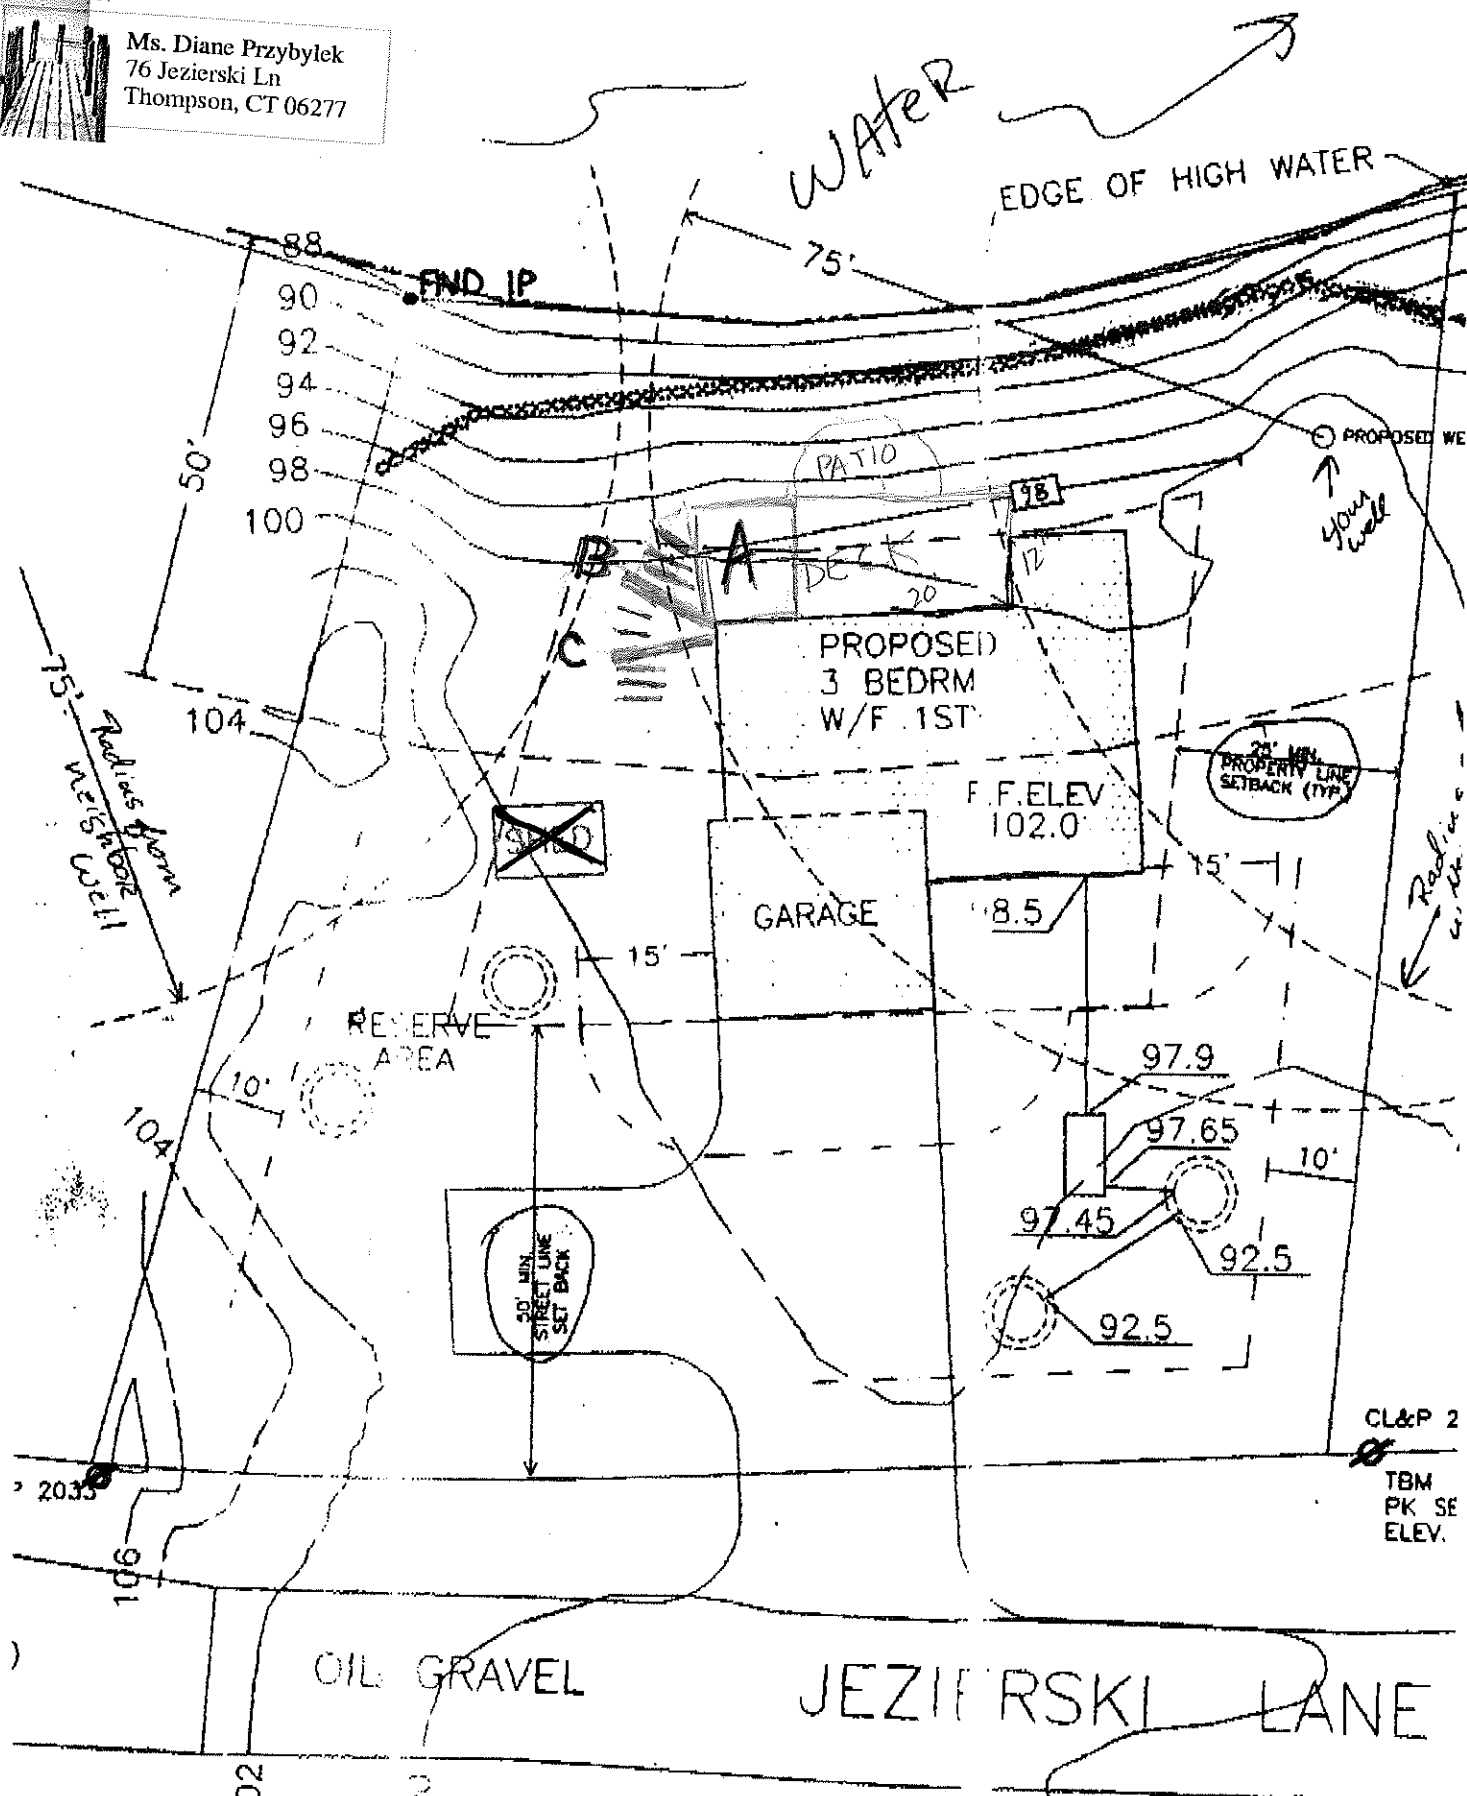 Ms. Diane Przybylek
76 Jezierski Ln
Thompson, CT 06277
WATER
EDGE OF HIGH WATER
75'
88
FND IP
90
92
94
96
98
100
50'
PROPOSED WE
your
well
PATIO
98
B
A
DECK
12'
20
C
PROPOSED
3 BEDRM
W/F 1ST
75'
Radius from
neighbor
well
104
25' MIN.
PROPERTY LINE
SETBACK (TYP.)
F.F.ELEV
102.0
SHED
15'
8.5
GARAGE
15'
Radius
RESERVE
AREA
10'
97.9
104
97.65
10'
97.45
92.5
50' MIN.
STREET LINE
SET BACK
92.5
CL&P 2
2033
TBM
PK SE
ELEV.
106
OIL GRAVEL
JEZIERSKI LANE
02